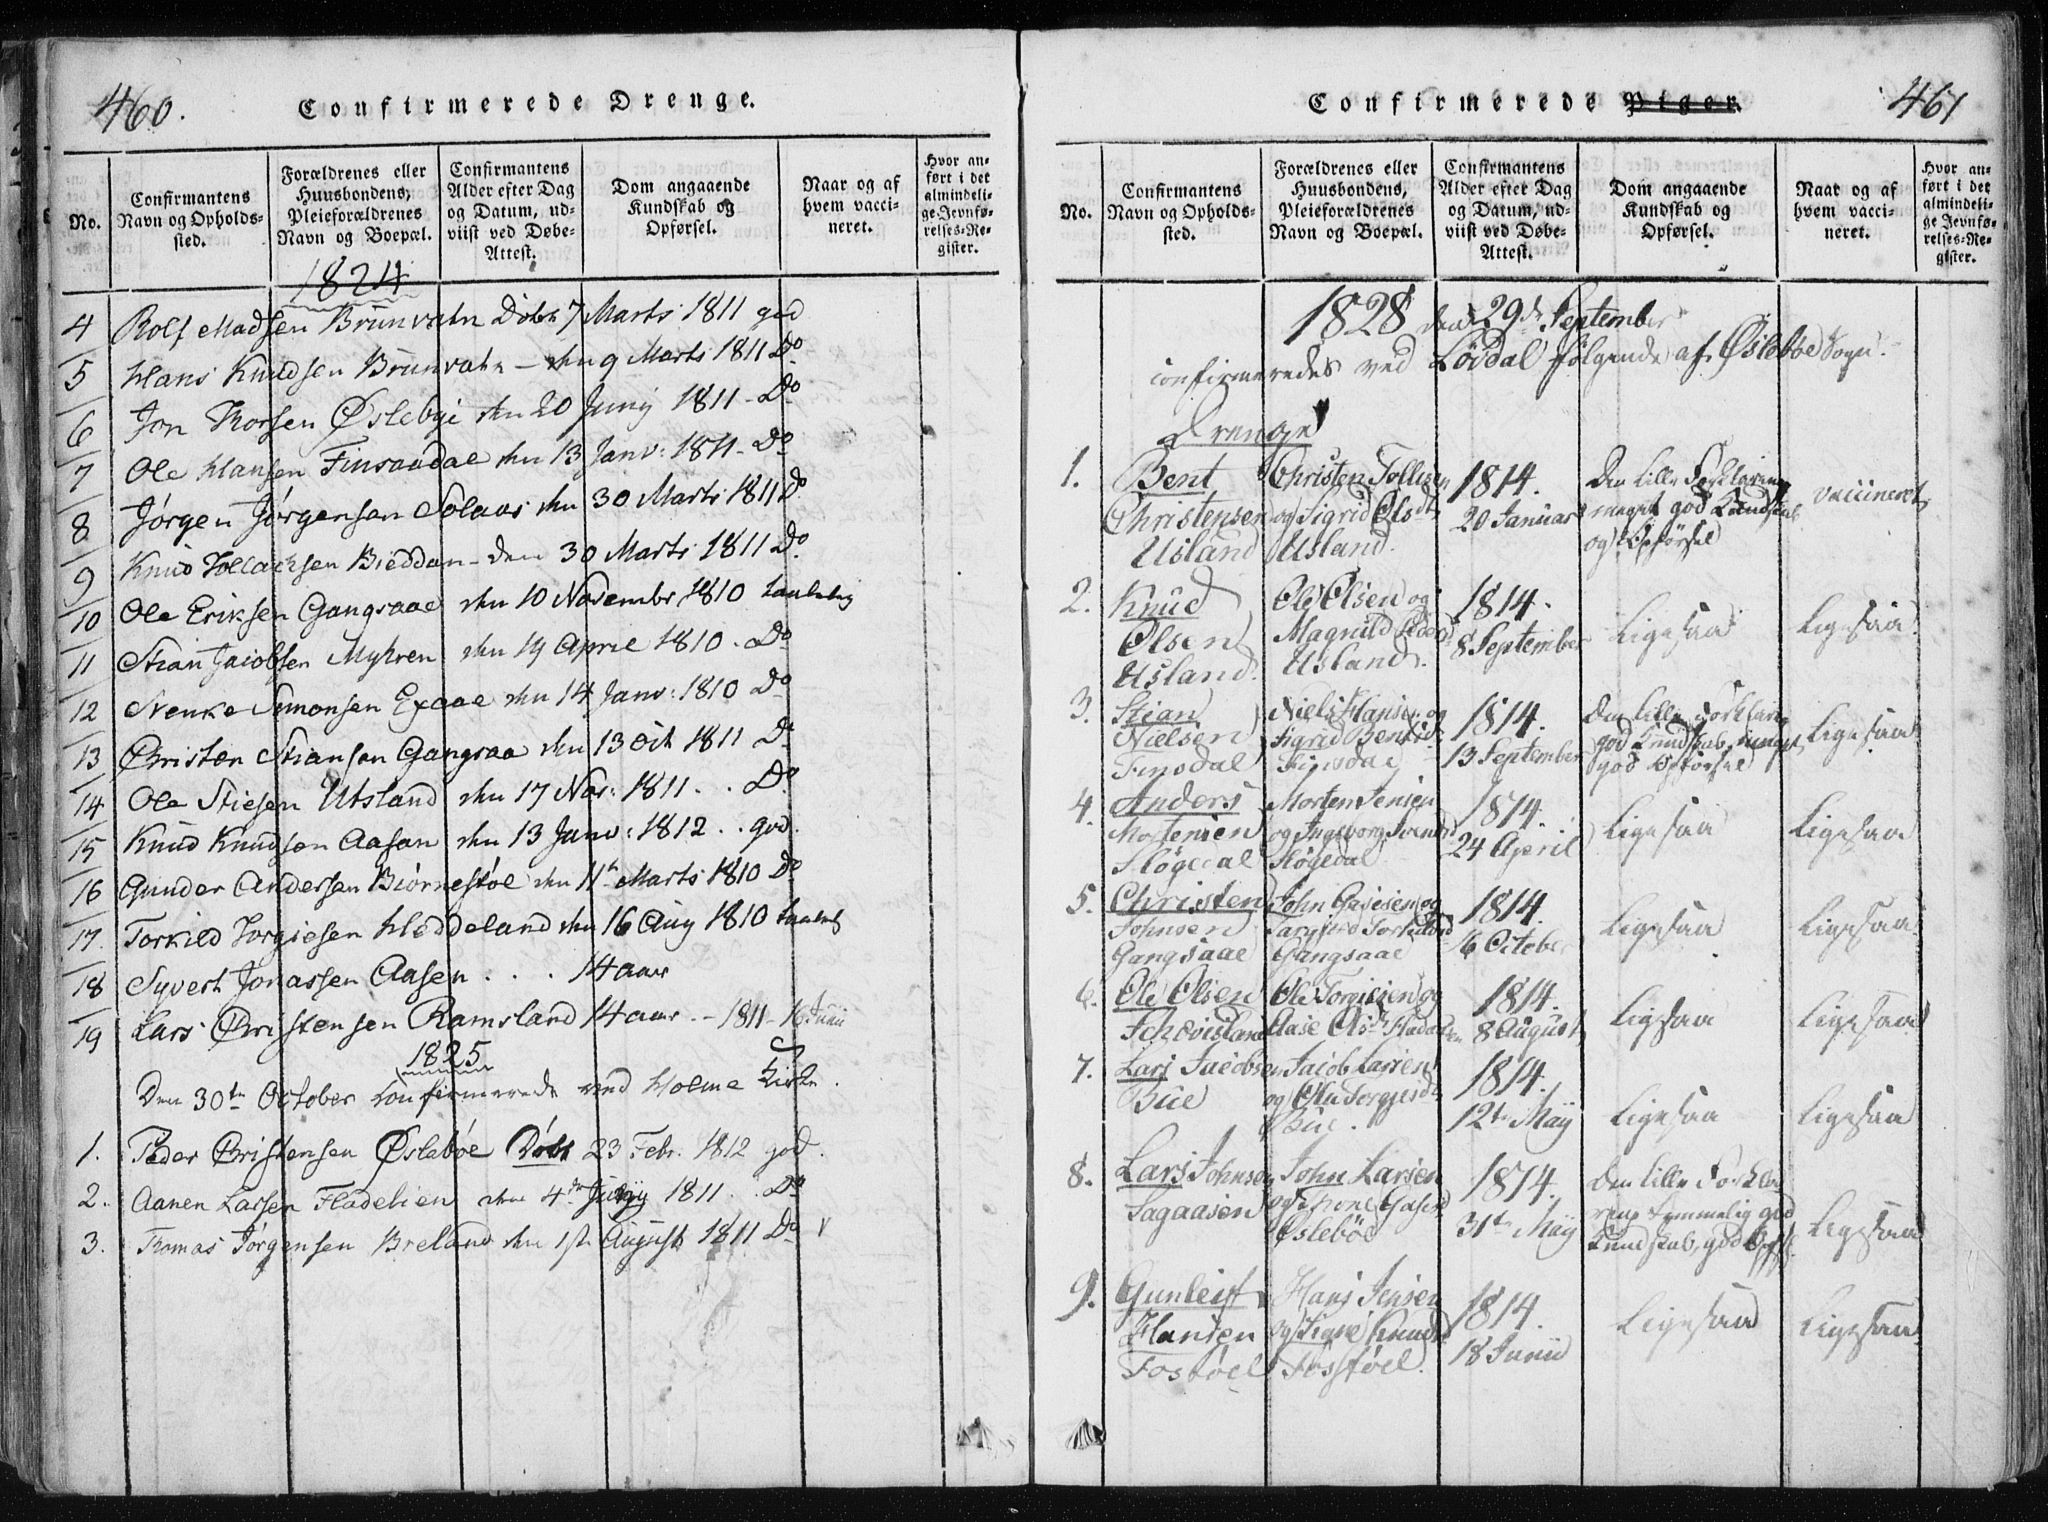 460.
Confirmerede Drenge.
No.
Confirmantens Navn og Opholds-sted.
Forældrenes eller Huusbondens, Pleieforældrenes Navn og Boepæl.
Confirmantens Alder efter Dag og Datum, ud-viist ved Døbe-Attest.
Dom angaaende Kundskab og Opførsel.
Naar og af hvem vacci-neret.
Hvor an-ført i det almindeli-ge Jevnfø-relses-Re-gister.
1824
4 Rolf Madsen Brunvatn Døbt 7 Marts 1811 god
5 Hans Knudsen Brunvatn - den 9 Marts 1811 Do
6 Jon Thorsen Øslebye den 20 Juny 1811 - Do
7 Ole Hansen Finsaadal den 13 Janv: 1811 - Do
8 Jørgen Jørgensen Solaas den 30 Marts 1811 Do
9 Knud Tollachsen - den 30 Marts 1811 Do
10 Ole Eriksen Gangsaae den 10 Novembr 1810 taalelig
11 Stian Jacobsen Myhren den 19 April 1810 . Do
12 Simonsen den 14 Janv: 1810 Do
13 Christen Stiansen Gangsaa den 13 Oct 1811 Do
14 Ole Stiesen Utsland den 17 Nov: 1811 . . Do
15 Knud Knudsen Aasen den 13 Janv: 1812 . . god.
16 Gunder Andersen Biørnestøl den 11te Marts 1810 Do
17 Torkild Torgiesen Heddeland den 16 Aug 1810
18 Syvert Jonassen Aasen . . . 14 aar
19 Lars Christensen Ramsland 14 aar. - 1811 - 16 Junii
1825
Den 30te October Confirmerede ved Holme Kirke.
1. Peder Christensen Øslebøe Døbt 23 Febr. 1812 god.
2. Aanen Larsen Fladelien den 4de July 1811 . Do
3. Thomas Jørgensen Breland den 1ste August 1811 Do
461
Confirmerede Piger.
No.
Confirmantens Navn og Opholds-sted.
Forældrenes eller Huusbondens, Pleieforældrenes Navn og Boepæl.
Confirmantens Alder efter Dag og Datum, ud-viist ved Døbe-Attest.
Dom angaaende Kundskab og Opførsel.
Naar og af hvem vacci-neret.
Hvor an-ført i det almindeli-ge Jevnfø-relses-Re-gister.
1828 den 29de September
confirmeredes ved Løvdal følgende af Øslebøe Sogn.
Drenge
1. Bent Christen Tollisen 1814. Den lille Forklaring
Christensen og Sigrid Olsdtr 20 Januar meget god Kundskab vaccineret
Usland Usland. og Opførsel
2. Knud Ole Olsen og 1814.
Olsen Magnild 8 September Ligesaa Ligesaa
Usland. Usland.
3. Stian Niels Hansen og 1814. Den lille Forklaring
Nielsen Sigrid 13 September god Kundskab, meget Ligesaa
Finsdal Finsdal god Opførsel
4. Anders Morten Jensen 1814.
Mortensen og Ingeborg 24 April Ligesaa Ligesaa
Støgedal Støgedal
5. Christen John og 1814.
Johnsen 16 October Ligesaa Ligesaa
Gangsaae Gangsaae
6. Ole Olsen Ole Torgiesen og 1814.
Aase 8 August Ligesaa Ligesaa
7. Lars Jacobsen Jacob Larsen 1814.
Bue og 12te May Ligesaa Ligesaa
Bue.
8. Lars Johnsen John Larsen 1814. Den lille Forkla
Sagaasen og Øslebøe 31te May ring temmelig god
Kundskab, god Opf. Ligesaa
9. Gunleif Hans Jensen 1814.
Hansen og 18 Junii Ligesaa Ligesaa
Fosstøel Fosstøel.